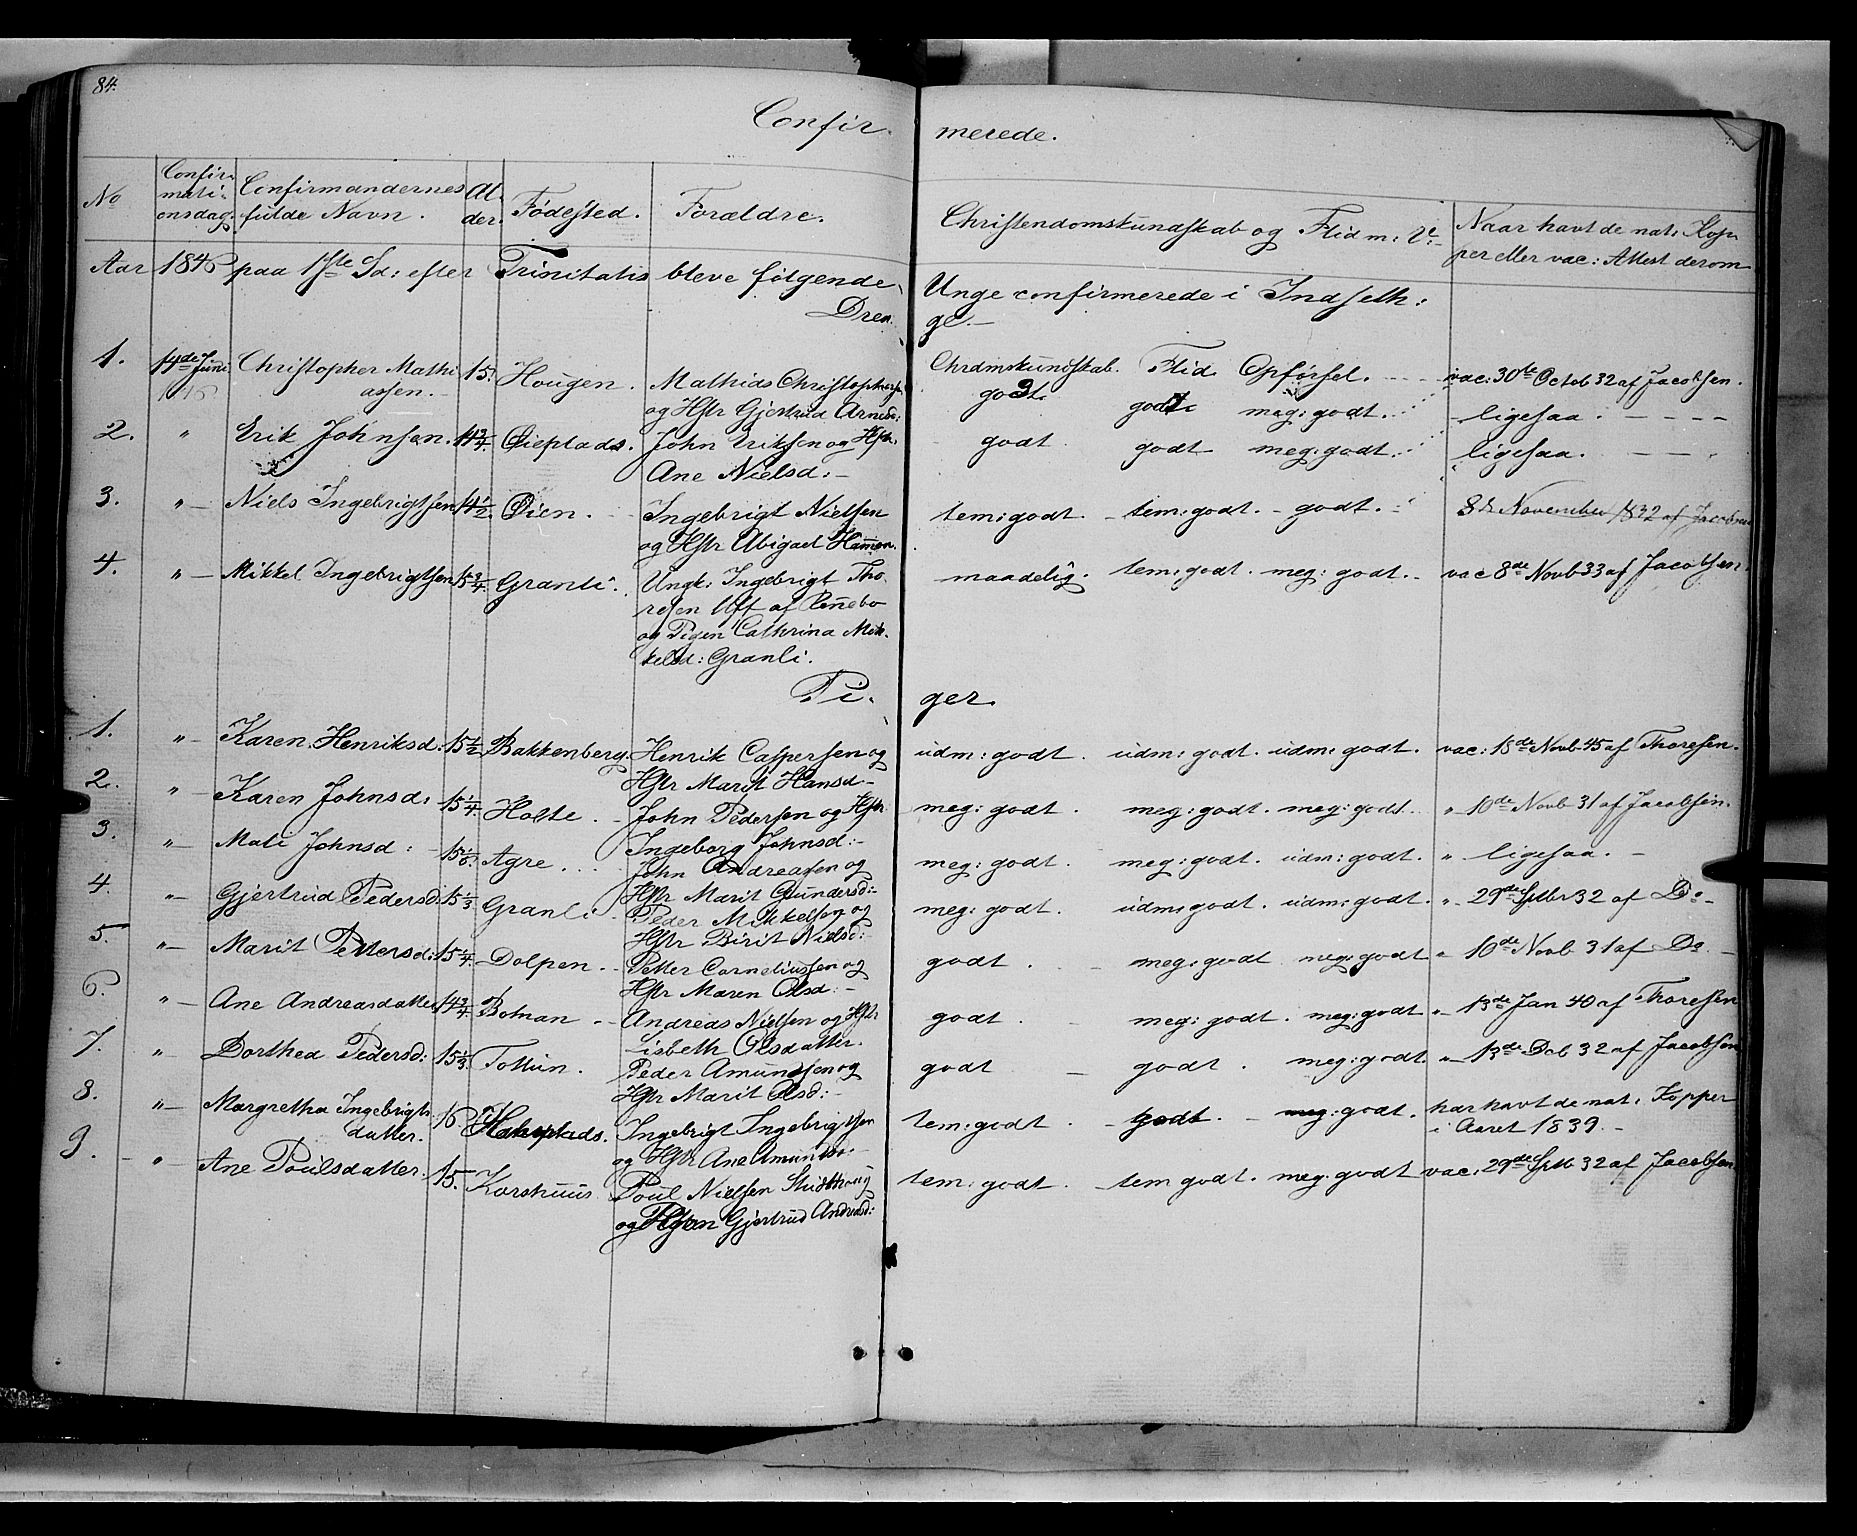 84.
Confir- merede.
No Confir- mati- onsdag. Confirmandernes fulde Navn. Al- der. Fødested. Forældre. Christendomskundskab og Flid m: V:- Naar havt de nat: Kop- per eller vac: Attest derom
Aar 1846 paa 1ste Sd: efter Trinitatis bleve følgende Unge confirmerede i Indseth:
Dren- ge.-
1. 14de Juni Christopher Mathi- 15. Hougen. Mathias Christophers Chrdmskundskab. Flid Opførsel. vac: 30te Octob 32 af Jacobsen.
1846 assen.- og Hstr Gjertrud Arnesd: godt godt meg: godt. - ligesaa.
2. " Erik Johnsen. 14 3/4. Øieplads. John Eriksen og Hstr. godt godt meg: godt. ligesaa.
Ane Nielsd:-
3. " Niels Ingebrigtsen 14 1/2. Øien. Ingebrigt Nielsen tem: godt - tem: godt. - godt. 8de November 1832 af Jacobsen
og Hstr Abigael
4. " Mikkel Ingebrigtsen 15 3/4 Granli. Ungk: Ingebrigt Tho- maadelig. tem: godt. meg: godt.- vac 8de Novb 33 af Jacobsen
resen Uff af Rennebo
og Pigen Cathrina Mik-
kelsd: Granli.
Pi- ger.
1. " Karen Henriksd. 15 1/2 Bakkenberg. Henrik Caspersen og udm: godt. udm: godt. udm: godt. vac: 18de Novb 45 af Thoresen.
Hstr Marit Hansd-
2. " Karen Johnsd: 15 1/4 Holte. John Pedersen og Hstr meg: godt. meg: godt. meg: godt. " 10de Novb 31 af Jacobsen.
Ingeborg Johnsd:-
3. " Mali Johnsd: 15 Agre... John Andreasen og meg: godt. meg: godt. udm: godt. " ligesaa.-
Hstr Marit Gundersd:-
4. " Gjertrud Pedersd. 15 1/3 Granli Peder Mikkelsen og meg: godt. udm: godt. udm: godt. " 29de Sptbr 32 af Do-
Hstr Birit Nielsd:-
5. " Marit Pettersd: 15 1/4. Dolpen. Petter Corneliussen og godt. meg: godt meg: godt " 10de Novb 31 af Do.-
Hstr Maren Olsd:-
6. " Ane Andreasdatter 14 3/4 Bolman. Andreas Nielsen og Hstr godt. meg: godt. meg: godt " 13de Jan 40 af Thoresen
Lisbeth Olsdatter.
7. " Dorthea Pedersd: 15 1/3. Tottun. Peder Amundsen og godt godt. meg: godt. " 13de Deb 32 af Jacobsen
Hstr Marit Olsd:-
8. " Margretha Ingebrigts- 16. Ingebrigt Ingebrigtsen tem: godt. godt. meg: godt. har havt de nat: Kopper
datter. og Hstr Ane Amundsd.- i Aaret 1839.-
9. " Ane Poulsdatter. 15. Korshuus. Poul Nielsen tem: godt. tem godt. meg: godt vac: 29de Sptb 32 af Jacobsen
og Gjertrud Andreasd: